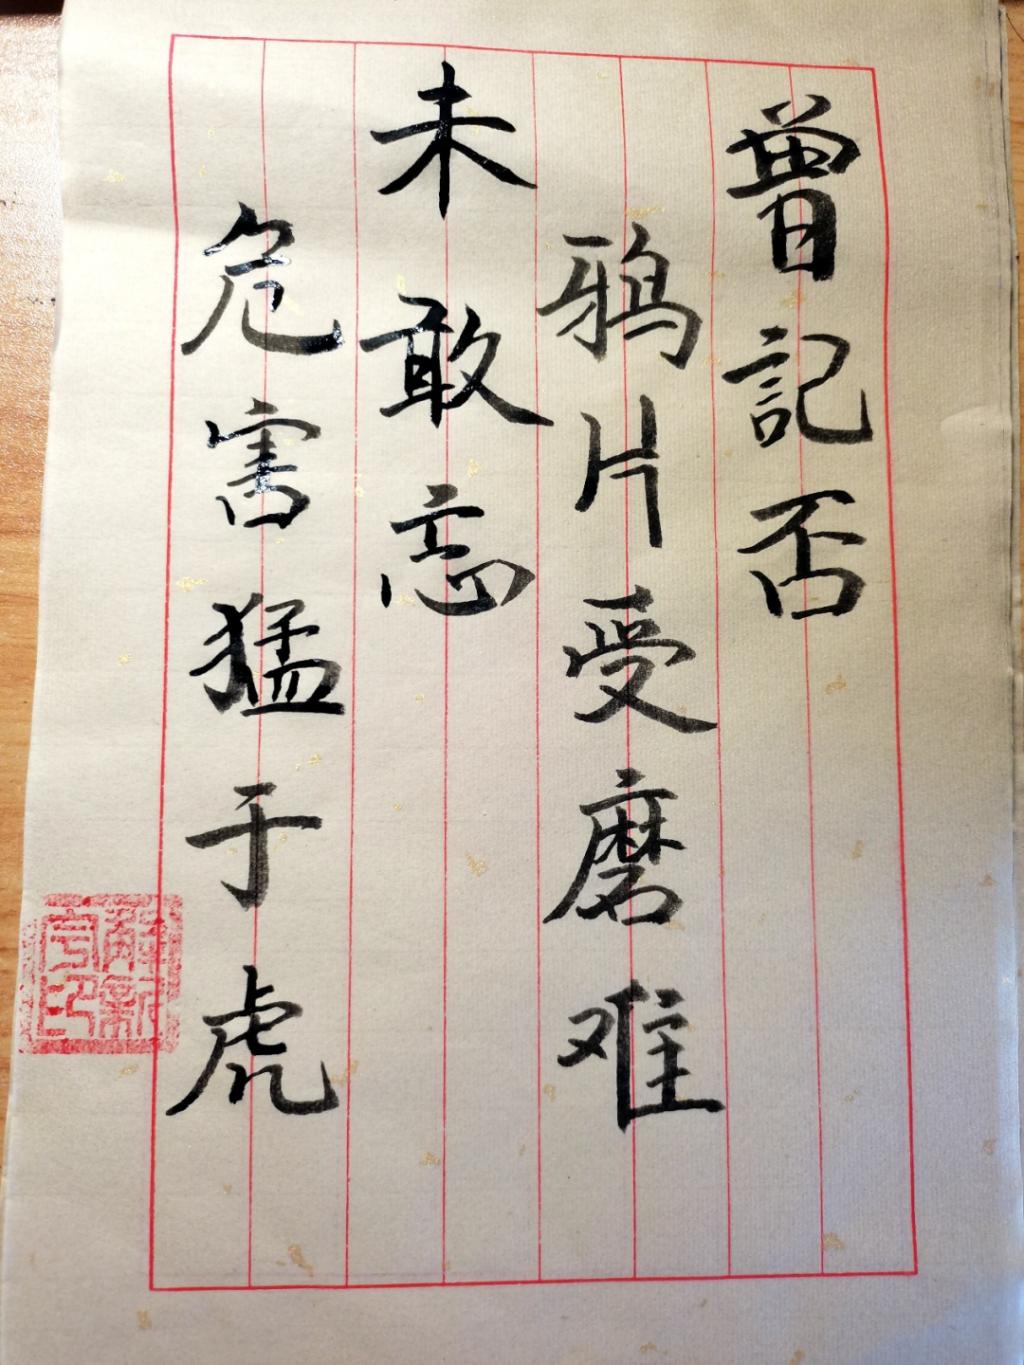 曾記否
鴉片受磨难
未敢忘
危害猛于虎